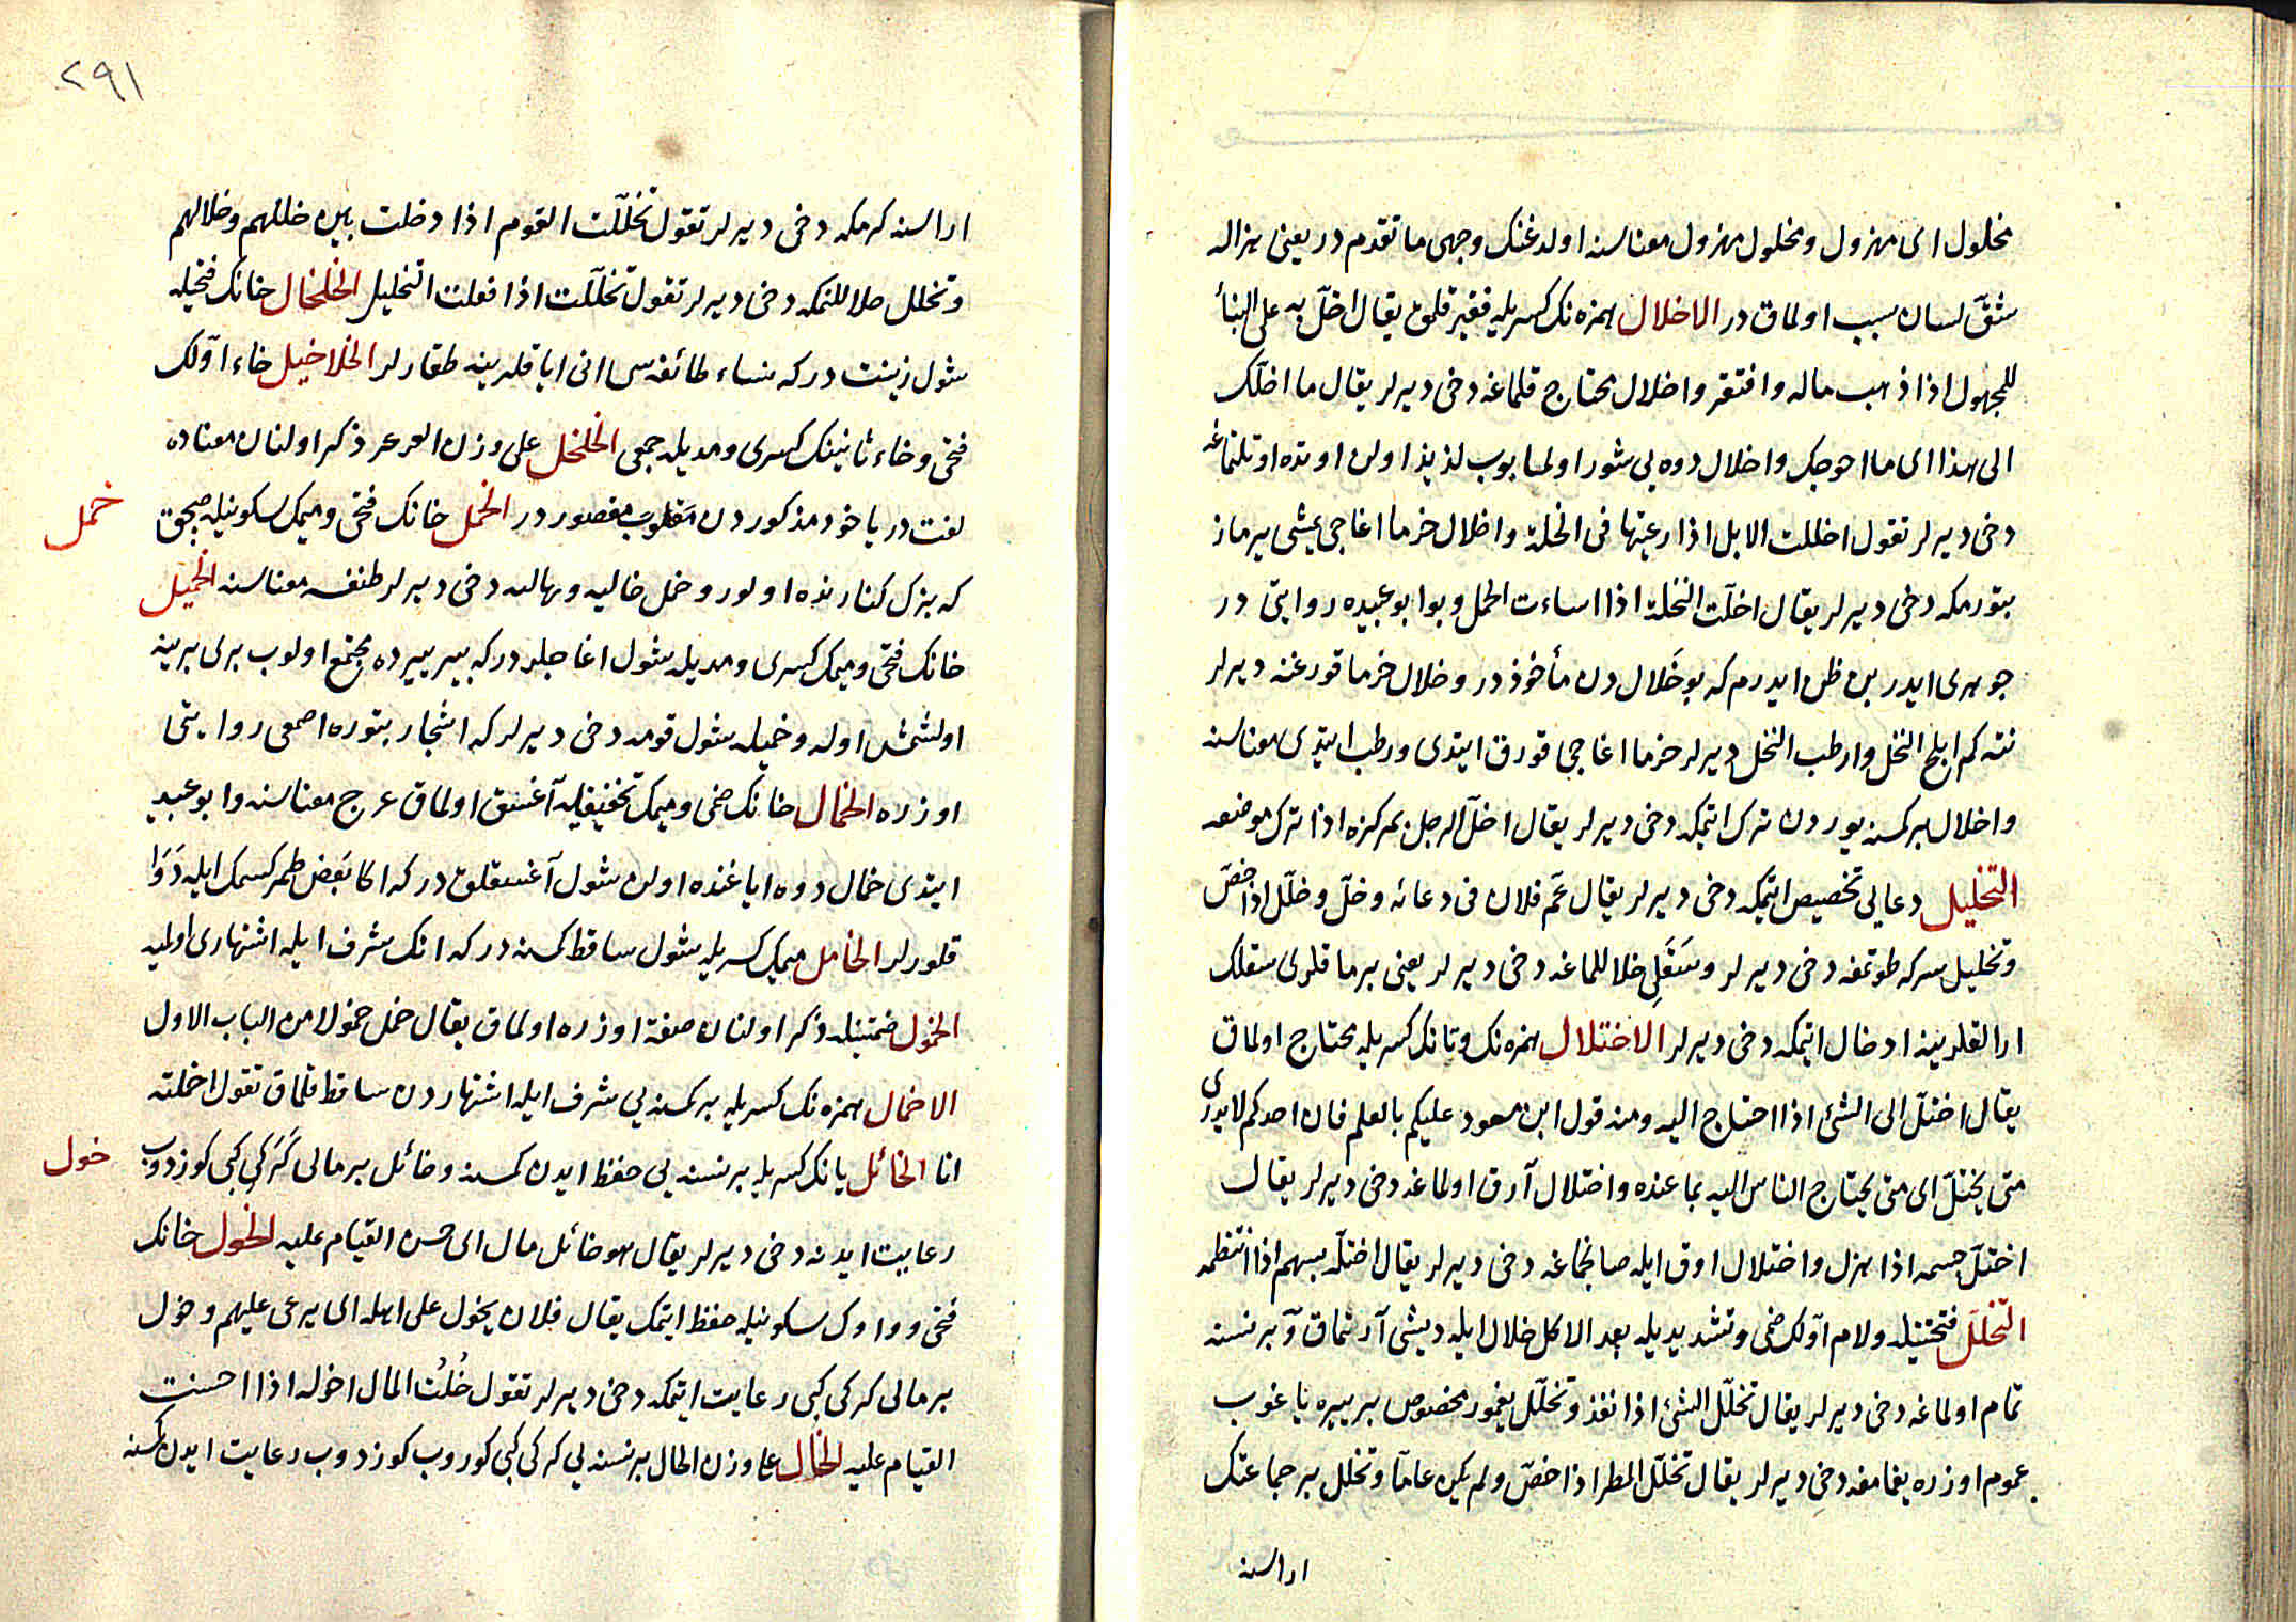 مخلول ای مهزول ومخلول مهزول معناسنه اولدغنك وجهی ما تقدم در یعنی هزاله
شقّ لسان سبب اولماق در الاخلال همزه نك كسریله فقیر قلمق یقال اخلّ به علی البنأ
للمجهول اذا ذهب ماله وافتقر واخلال محتاج قلماغه دخی دیرلر یقال ما اخلّك
الی هذا ای ما احوجك واخلال دوه یی شور اولمایوب لذیذ اولن اوتده اوتلتماغه
دخی دیرلر تقول اخللت الابل اذا رعیتها فی الخلة واخلال خرما اغاجی یمشی یرماز
بتورمكه دخی دیرلر یقال اخلّت النخلة اذا اساءت الحمل وبو ابو عبیده روایتی در
جوهری ایدر بن ظن ایدرم كه بو خَلال دن مأخوذ در وخلال خرما قورغنه دیرلر
نته كم ابلح النخل وارطب النخل دیرلر خرما اغاجی قورق ایتدی ورطب ایتدی معناسنه
واخلال بر كمسنه یوردن ترك ایتمكه دخی دیرلر یقال اخلّ الرجل بمركزه اذا ترك موضعه
التخلیل دعایی تخصیص ایتمكه دخی دیرلر یقال عمّ فلان فی دعائه وخلّ وخلّل اذا خصّ
وتخلیل سركه طوتمغه دخی دیرلر وسَقَلی خلاللماغه دخی دیرلر یعنی برماقلری سقلك
ارالقلرینه ادخال ایتمكه دخی دیرلر الاختلال همزه نك وتانك كسریله محتاج اولماق
یقال اختلّ الی الشئ اذا احتاج الیه ومنه قول ابن مسعود علیكم بالعلم فان احدكم لا یدری
متی یختلّ ای متی یحتاج الناس الیه بما عنده واختلال آرق اولماغه دخی دیرلر یقال
اختلّ جسمه اذا هزل واختلال اوق ایله صانجماغه دخی دیرلر یقال اختلّه بسهم اذا انتظمه
التخلل فتحتیله ولام اوّلك ضمی وتشدیدیله بعد الاكل خلال ایله دیشی آرتماق وبر نسنه
تمام اولماغه دخی دیرلر یقال تخلّل الشئ اذا نفذ وتخلّل یغمور مخصوص بر ییره یاغوب
عموم اوزره یغمامغه دخی دیرلر یقال تخلّل المطر اذا خصّ ولم یكن عامّا وتخلل بر جماعتك
اراسنه
٢٩١
اراسنه كرمكه دخی دیرلر تقول تخلّلت القوم اذا دخلت بین خللهم وخلالهم
وتخلل خلاللنمكه دخی دیرلر تقول تخلّلت اذا فعلت التخلیل الخلخال خانك فتحیله
شول زینت در كه نساء طائفه سی انی ایاقلرینه طقارلر الخلاخیل خاء اوّلك
فتحی وخاء ثانینك كسری ومدیله جمعی الخلخل علی وزن العرعر ذكر اولنان معناده
لغت در یاخود مذكوردن مقلوب مقصور در الخمل خانك فتحی ومیمك سكونیله صچق
خمل
كه بزك كنارنده اولور وخمل خالیه ونهالیه دخی دیرلر طنفسه معناسنه الخمیل
خانك فتحی ومیمك كسری ومدیله شول اغاجلر در كه بیر ییرده مجتمع اولوب بری برینه
اولشمش اوله وخمیله شول قومه دخی دیرلر كه اشجار بتوره اصمعی روایتی
اوزره الخمال خانك ضمی ومیمك تخفیفیله آغسق اولماق عرج معناسنه وابو عبید
ایتدی خمال دوه ایاغنده اولن شول آغسقلق در كه اكا بعض طمر كسمك ایله دَوَا
قلورلر الخامل میمك كسریله شول ساقط كمسنه در كه انك شرف ایله اشتهاری اولمیه
الخمول ضمتینله ذكر اولنان صفة اوزره اولماق یقال خمل خمولا من الباب الاول
الاخمال همزه نك كسریله بر كمسنه یی شرف ایله اشتهاردن ساقط قلماق تقول اخملته
انا الخائل یانك كسریله بر نسنه یی حفظ ایدن كمسنه وخائل بر مالی كَرَكی كبی كوزدوب
خول
رعایت ایدنه دخی دیرلر یقال هو خائل مال ای حسن القیام علیه الخول خانك
فتحی وواوك سكونیله حفظ ایتمك یقال فلان یخول علی اهله ای یرعی علیهم وخول
بر مالی كركی كبی رعایت ایتمكه دخی دیرلر تقول خُلتُ المال اخوله اذا احسنت
القیام علیه الخال علی وزن الحال بر نسنه یی كركی كبی كوروب كوزدوب رعایت ایدن كمسنه